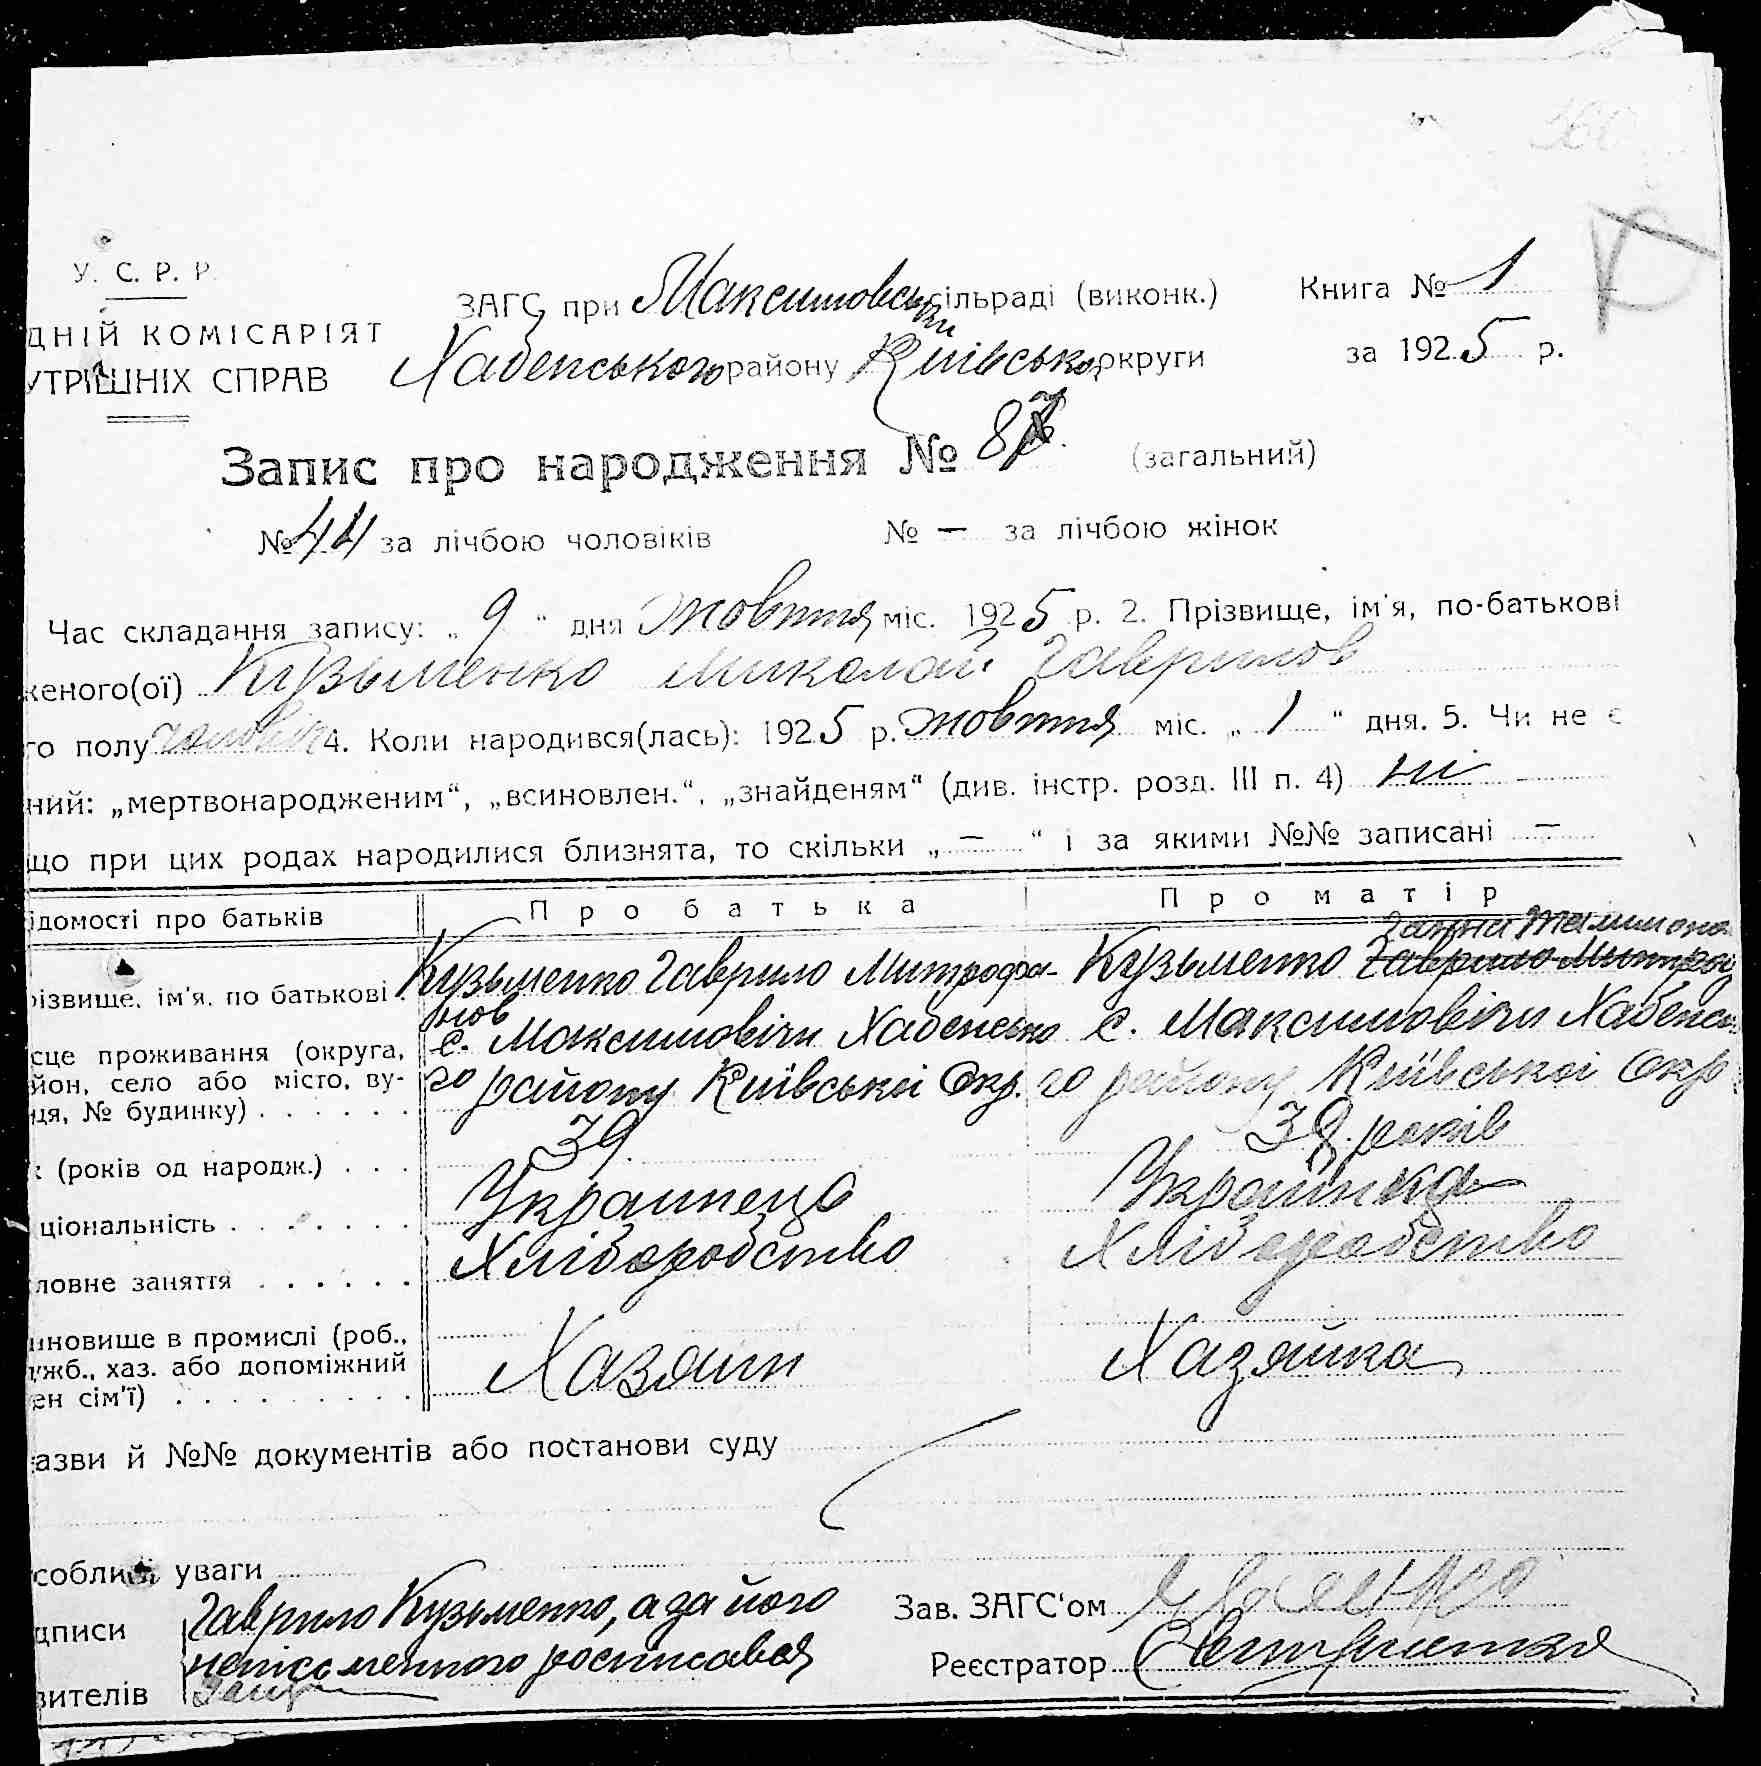 У. С. Р. Р.
ДНІЙ КОМІСАРІЯТ
УТРІШНІХ СПРАВ
ЗАГС при Максимовський сільраді (виконк.)
Хабенського району Київської округи
Книга № 1
за 1925 р.
Запис про народження № 87 (загальний)
№ 44 за лічбою чоловіків № — за лічбою жінок
Час складання запису: „ 9 “ дня жовтня міс. 1925 р. 2. Прізвище, ім'я, по-батькові
женого(ої) Кузьменко Миколай Гаврилов
го полу чоловік 4. Коли народився(лась): 1925 р. жовтня міс. „ 1 “ дня. 5. Чи не є
ний: „мертвонародженим“, „всиновлен.“, „знайденям“ (див. інстр. розд. III п. 4) ні —
що при цих родах народилися близнята, то скільки „ — “ і за якими №№ записані —
ідомості про батьків Про батька Про матір
різвище, ім'я, по батькові Кузьменко Гаврило Митрофанов Кузьменко Гаврило Митроф Ганна
сце проживання (округа, с. Максимовічи Хабенсько с. Максимовічи Хабенсь
йон, село або місто, ву- го району Київської Окр. го району Київської Окр
ця, № будинку) . . . . . .
к (років од народж.) . . . 39 38 років
ціональність . . . . . . Українець Українка
ловне заняття . . . . . . Хліборобство Хліборобство
ановище в промислі (роб.,
ужб., хаз. або допоміжний Хазяин Хазяйка
ен сім'ї) . . . . . . . .
азви й №№ документів або постанови суду
собливі уваги
дписи Гаврило Кузьменко, а за його Зав. ЗАГС'ом
неписьменного росписався Реєстратор
вителів